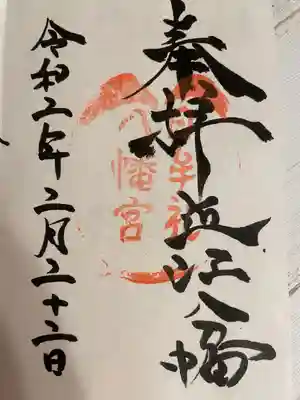 奉拝 近江八幡
日牟禮八幡宮
令和二年二月二十二日